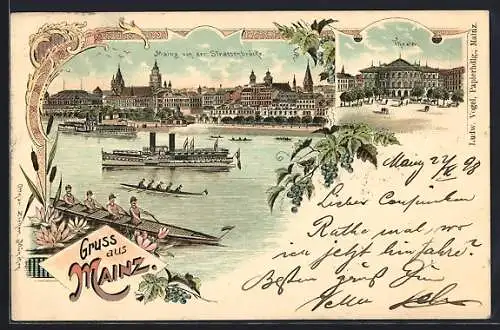 Mainz von der Strassenbrücke.
Theater.
Ludw. Vogel, Papierhdlg., Mainz.
Gruss
aus
MAINZ.
Mainz 24/X 98
Lieber
Rathe mal, wo
ich jetzt hinfahre?
Besten Gruß